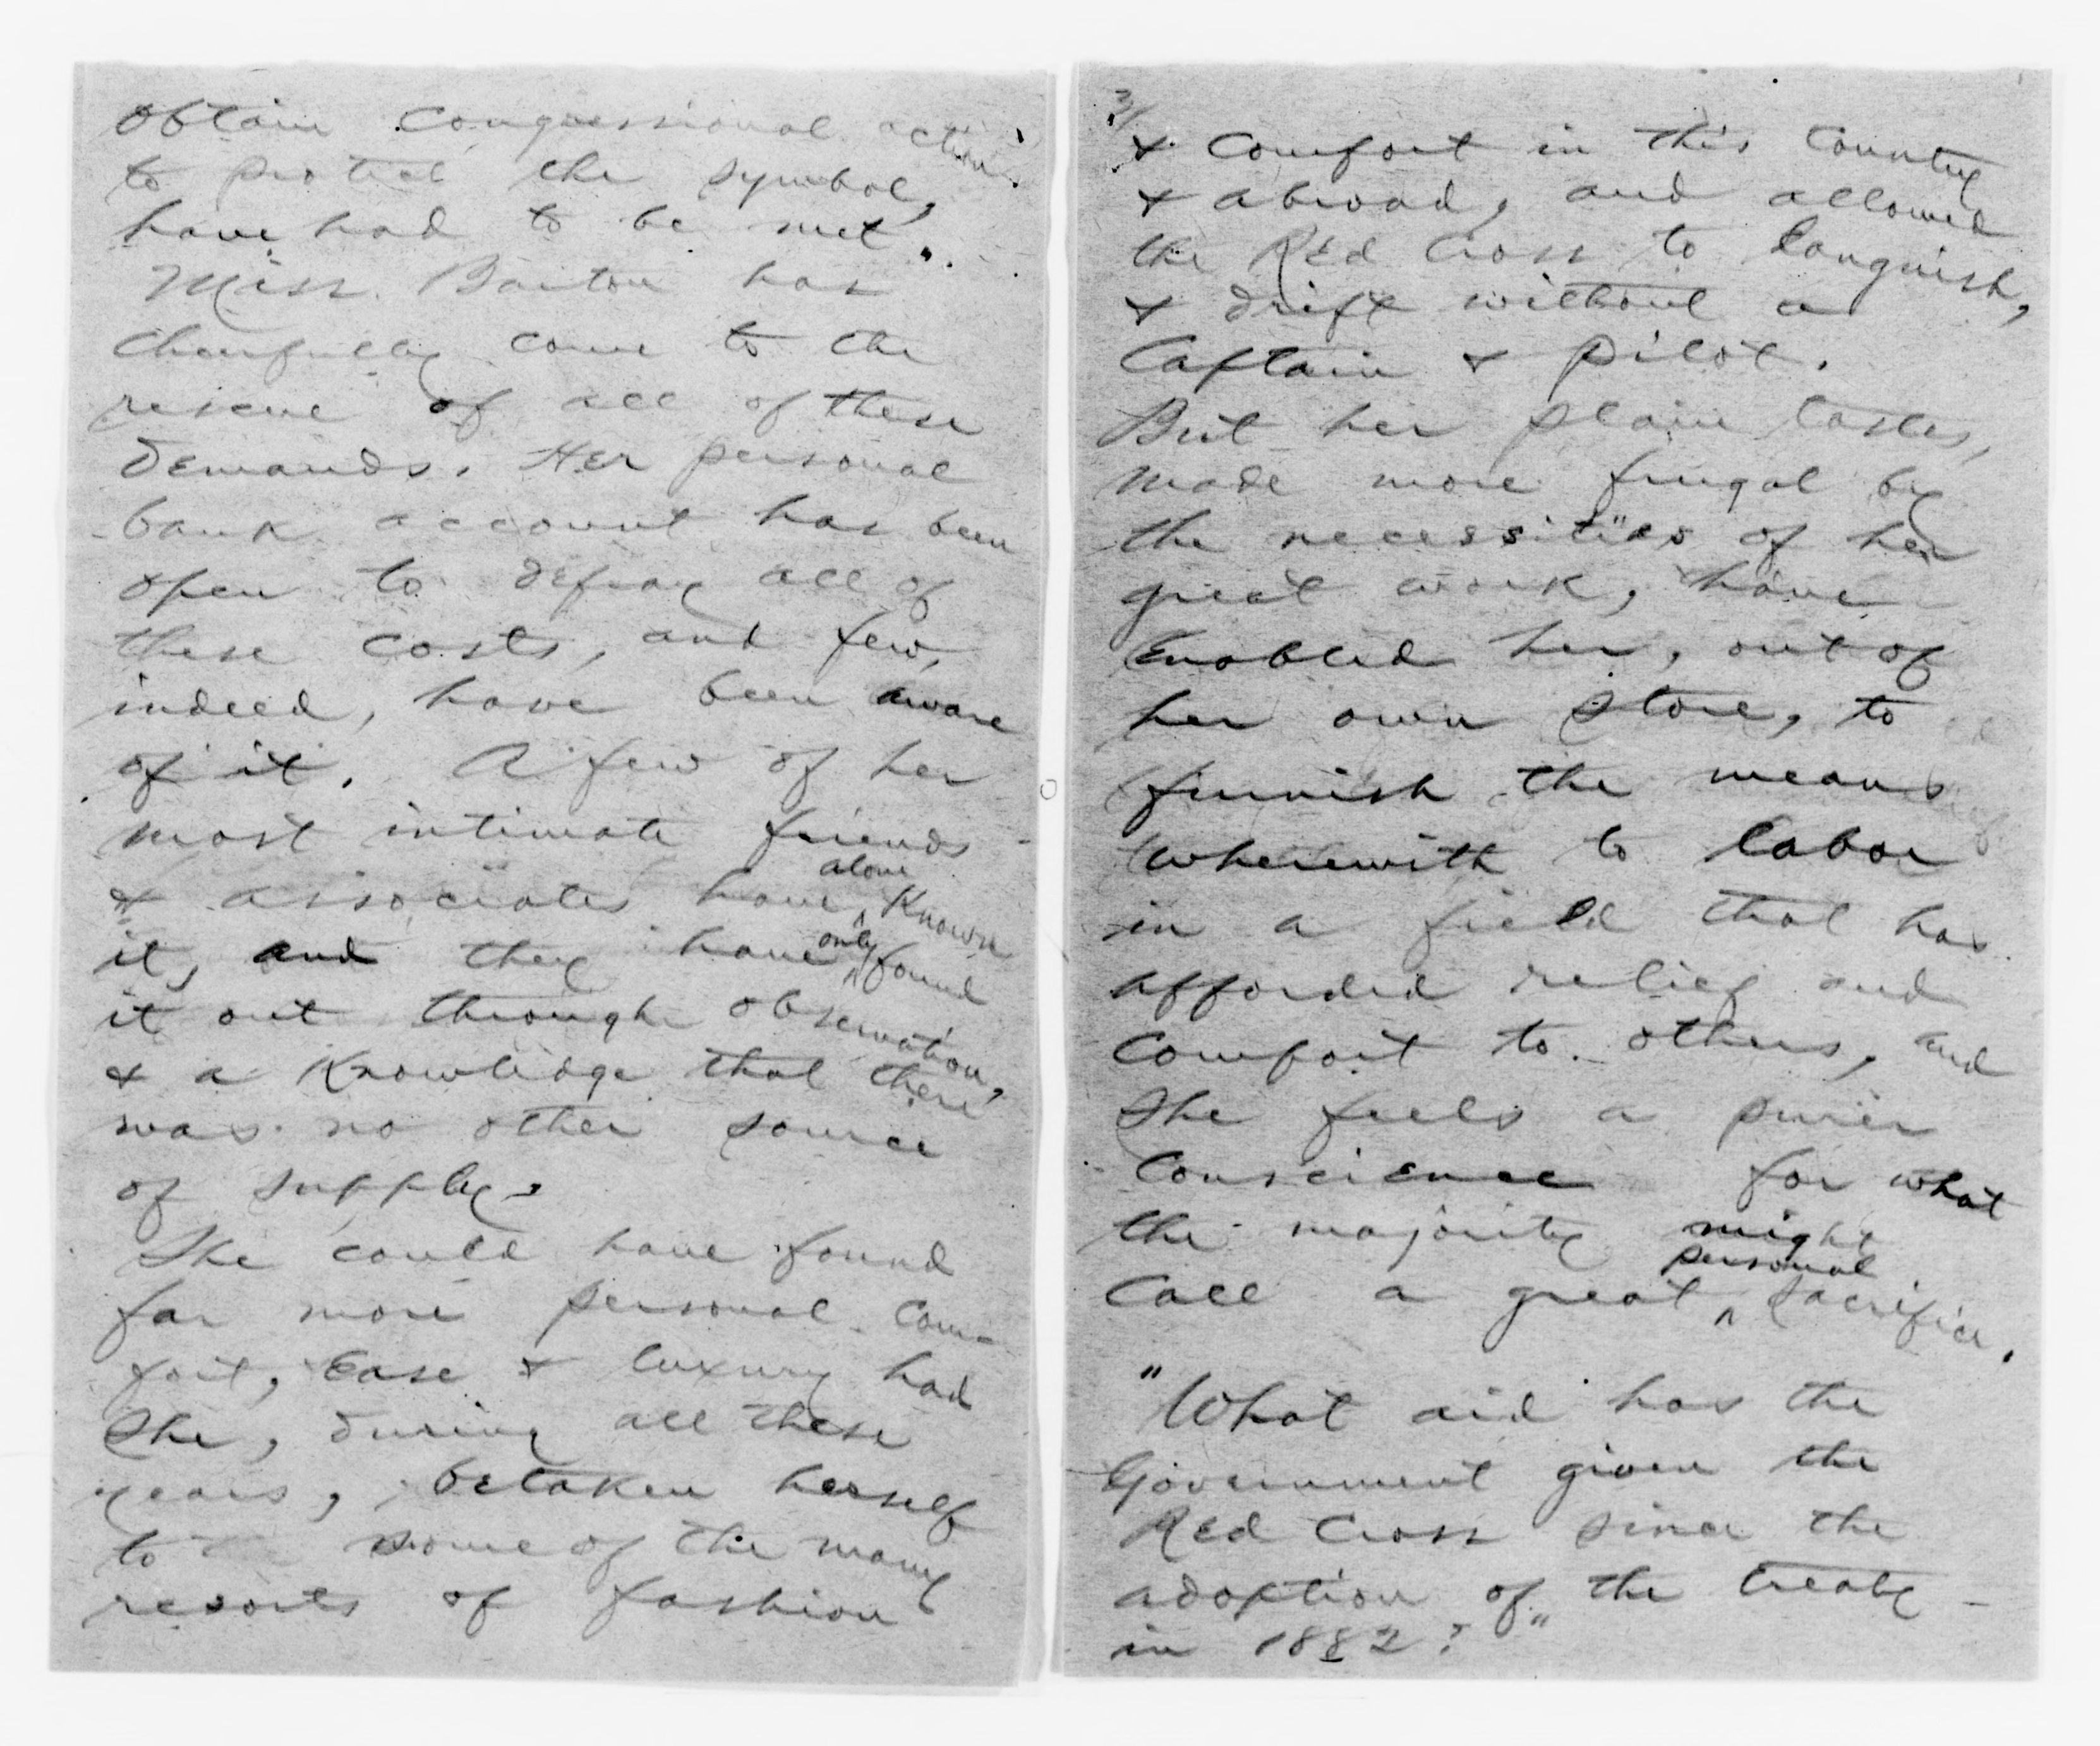 obtain Congressional action
to protect the symbol,
have had to be met".
Miss Barton has
cheerfully come to the
rescue of all of these
demands. Her personal
bank account has been
open to defray all of
these costs, and few,
indeed, have been aware
of it. A few of her
most intimate friends
alone
& associates have ^ known
only
it, and they have ^ found
it out through observation,
& a knowledge that there
was no other source
of supply.
She could have found
far more personal com-
fort, ease & luxury had
she, during all these
years, betaken herself
to some of the many
resorts of fashion
& comfort in this country
& abroad, and allowed
the Red Cross to languish,
& drift without a
Captain & pilot.
But her plain tastes,
made more frugal by
the necessities of her
great work, have
enabled her, out of
her own store, to
furnish the means
wherewith to labor
in a field that has
afforded relief and
comfort to others, and
she feels a purer
conscience for what
the majority might
personal
call a great ^ sacrifice.
"What aid has the
Government given the
Red Cross since the
adoption of the treaty
in 1882?"